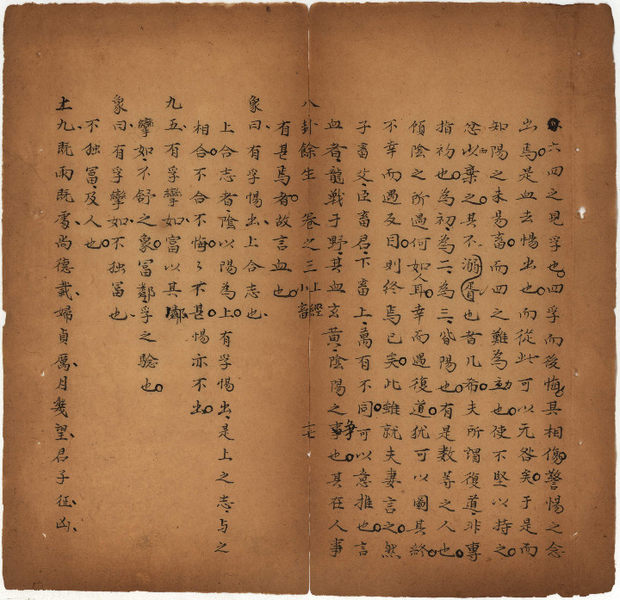 六四之見孚也四孚而後悔其相傷警惕之念
出焉是血去惕出也而從此可以元咎矣于是而
知陽之未易畜而四之難為功也使不堅以持之
忽以棄之其不溺胥也者几希夫所謂復道非專
指初也為初為二為三皆陽也有是数等之人也
傾陰之所遇何如耳幸而遇復道犹可以圖其終
不幸而遇反目則終焉已矣此雖就夫妻言之然
子畜父臣畜君下畜上畜有不同可以意推也言
血者龍戰于野其血玄黃陰陽之争也其在人事
八卦餘生 卷之三 上經 小畜 十七
有甚焉者故言血也
象曰有孚惕出上合志也
上合志者陰以陽為上有孚惕出是上之志与之
相合不合不悔々不甚惕亦不出
九五有孚攣如富以其鄰
攣如不舒之象富鄰孚之驗也
象曰有孚攣如不独冨也
不独冨及人也
上九既雨既處尚德載婦貞厲月幾望君子征凶